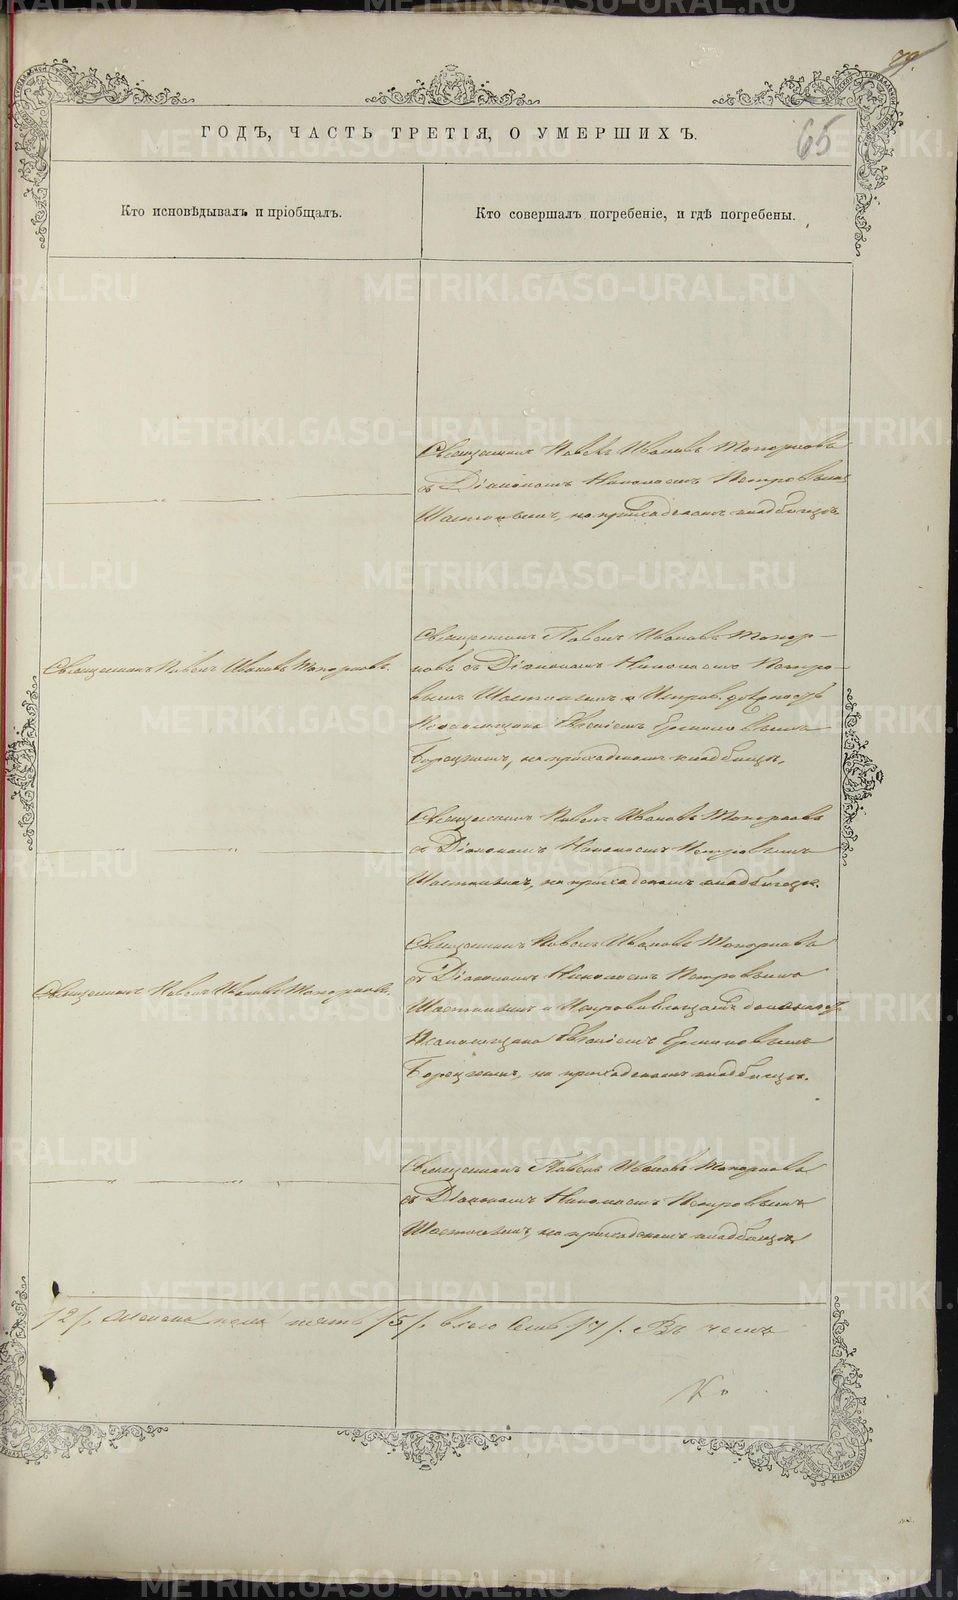 77.
65
ГОДЪ, ЧАСТЬ ТРЕТІЯ, О УМЕРШИХЪ.
Кто исповѣдывалъ и пріобщалъ.
Кто совершалъ погребеніе, и гдѣ погребены.
Священникъ Павелъ Ивановъ Топорковъ
съ Діакономъ Николаемъ Петровымъ
на приходскомъ кладбищѣ
Священникъ Павелъ Ивановъ Топорковъ.
Священникъ Павелъ Ивановъ Топор-
ковъ съ Діакономъ Николаемъ Петро-
вымъ и Исправ. должность
Псаломщика Евгеніемъ
на приходскомъ кладбищѣ.
Священникъ Павелъ Ивановъ Топорковъ
съ Діакономъ Николаемъ Петровымъ
на приходскомъ кладбищѣ.
Священникъ Павелъ Ивановъ Топорковъ.
Священникъ Павелъ Ивановъ Топорковъ
съ Діакономъ Николаемъ Петровымъ
и
Псаломщика Евгеніемъ
на приходскомъ кладбищѣ.
Священникъ Павелъ Ивановъ Топорковъ
съ Діакономъ Николаемъ Петровымъ
на приходскомъ кладбищѣ
/2/, женска пола пять /5/, всего семь /7/. Въ чемъ
METRIKI.GASO-URAL.RU